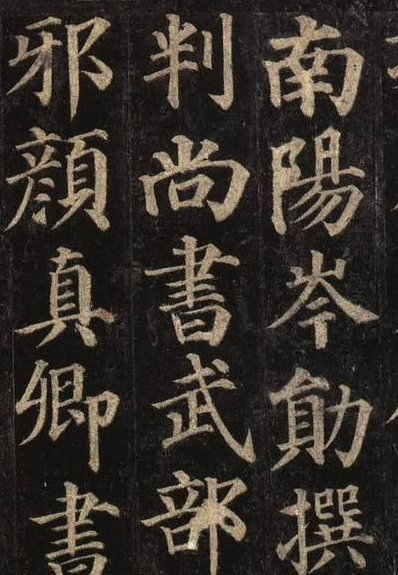 南陽岑勛撰
判尚書武部
邪顏真卿書